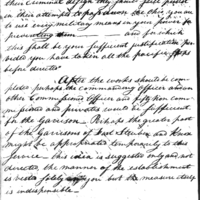 in this attempt to possession of the places you are
to use every military means in your power for
preventing them — and for which
this shall be your sufficient justification, pro-
vided you have taken all the pacific steps
before directed
After the works should be com-
pleted perhaps the commanding officer and an
other Commissioned Officer and fifty non com-
missioned and privates would be sufficient
for the Garrison. Perhaps the greater part
of the Garrisons of Fort Steuben and Knox
might be appropriated temporarily to this
service. This idea is suggested only and not
directed, the manner of the establishment
is vested solely in you but the measure itself
is indispensable.